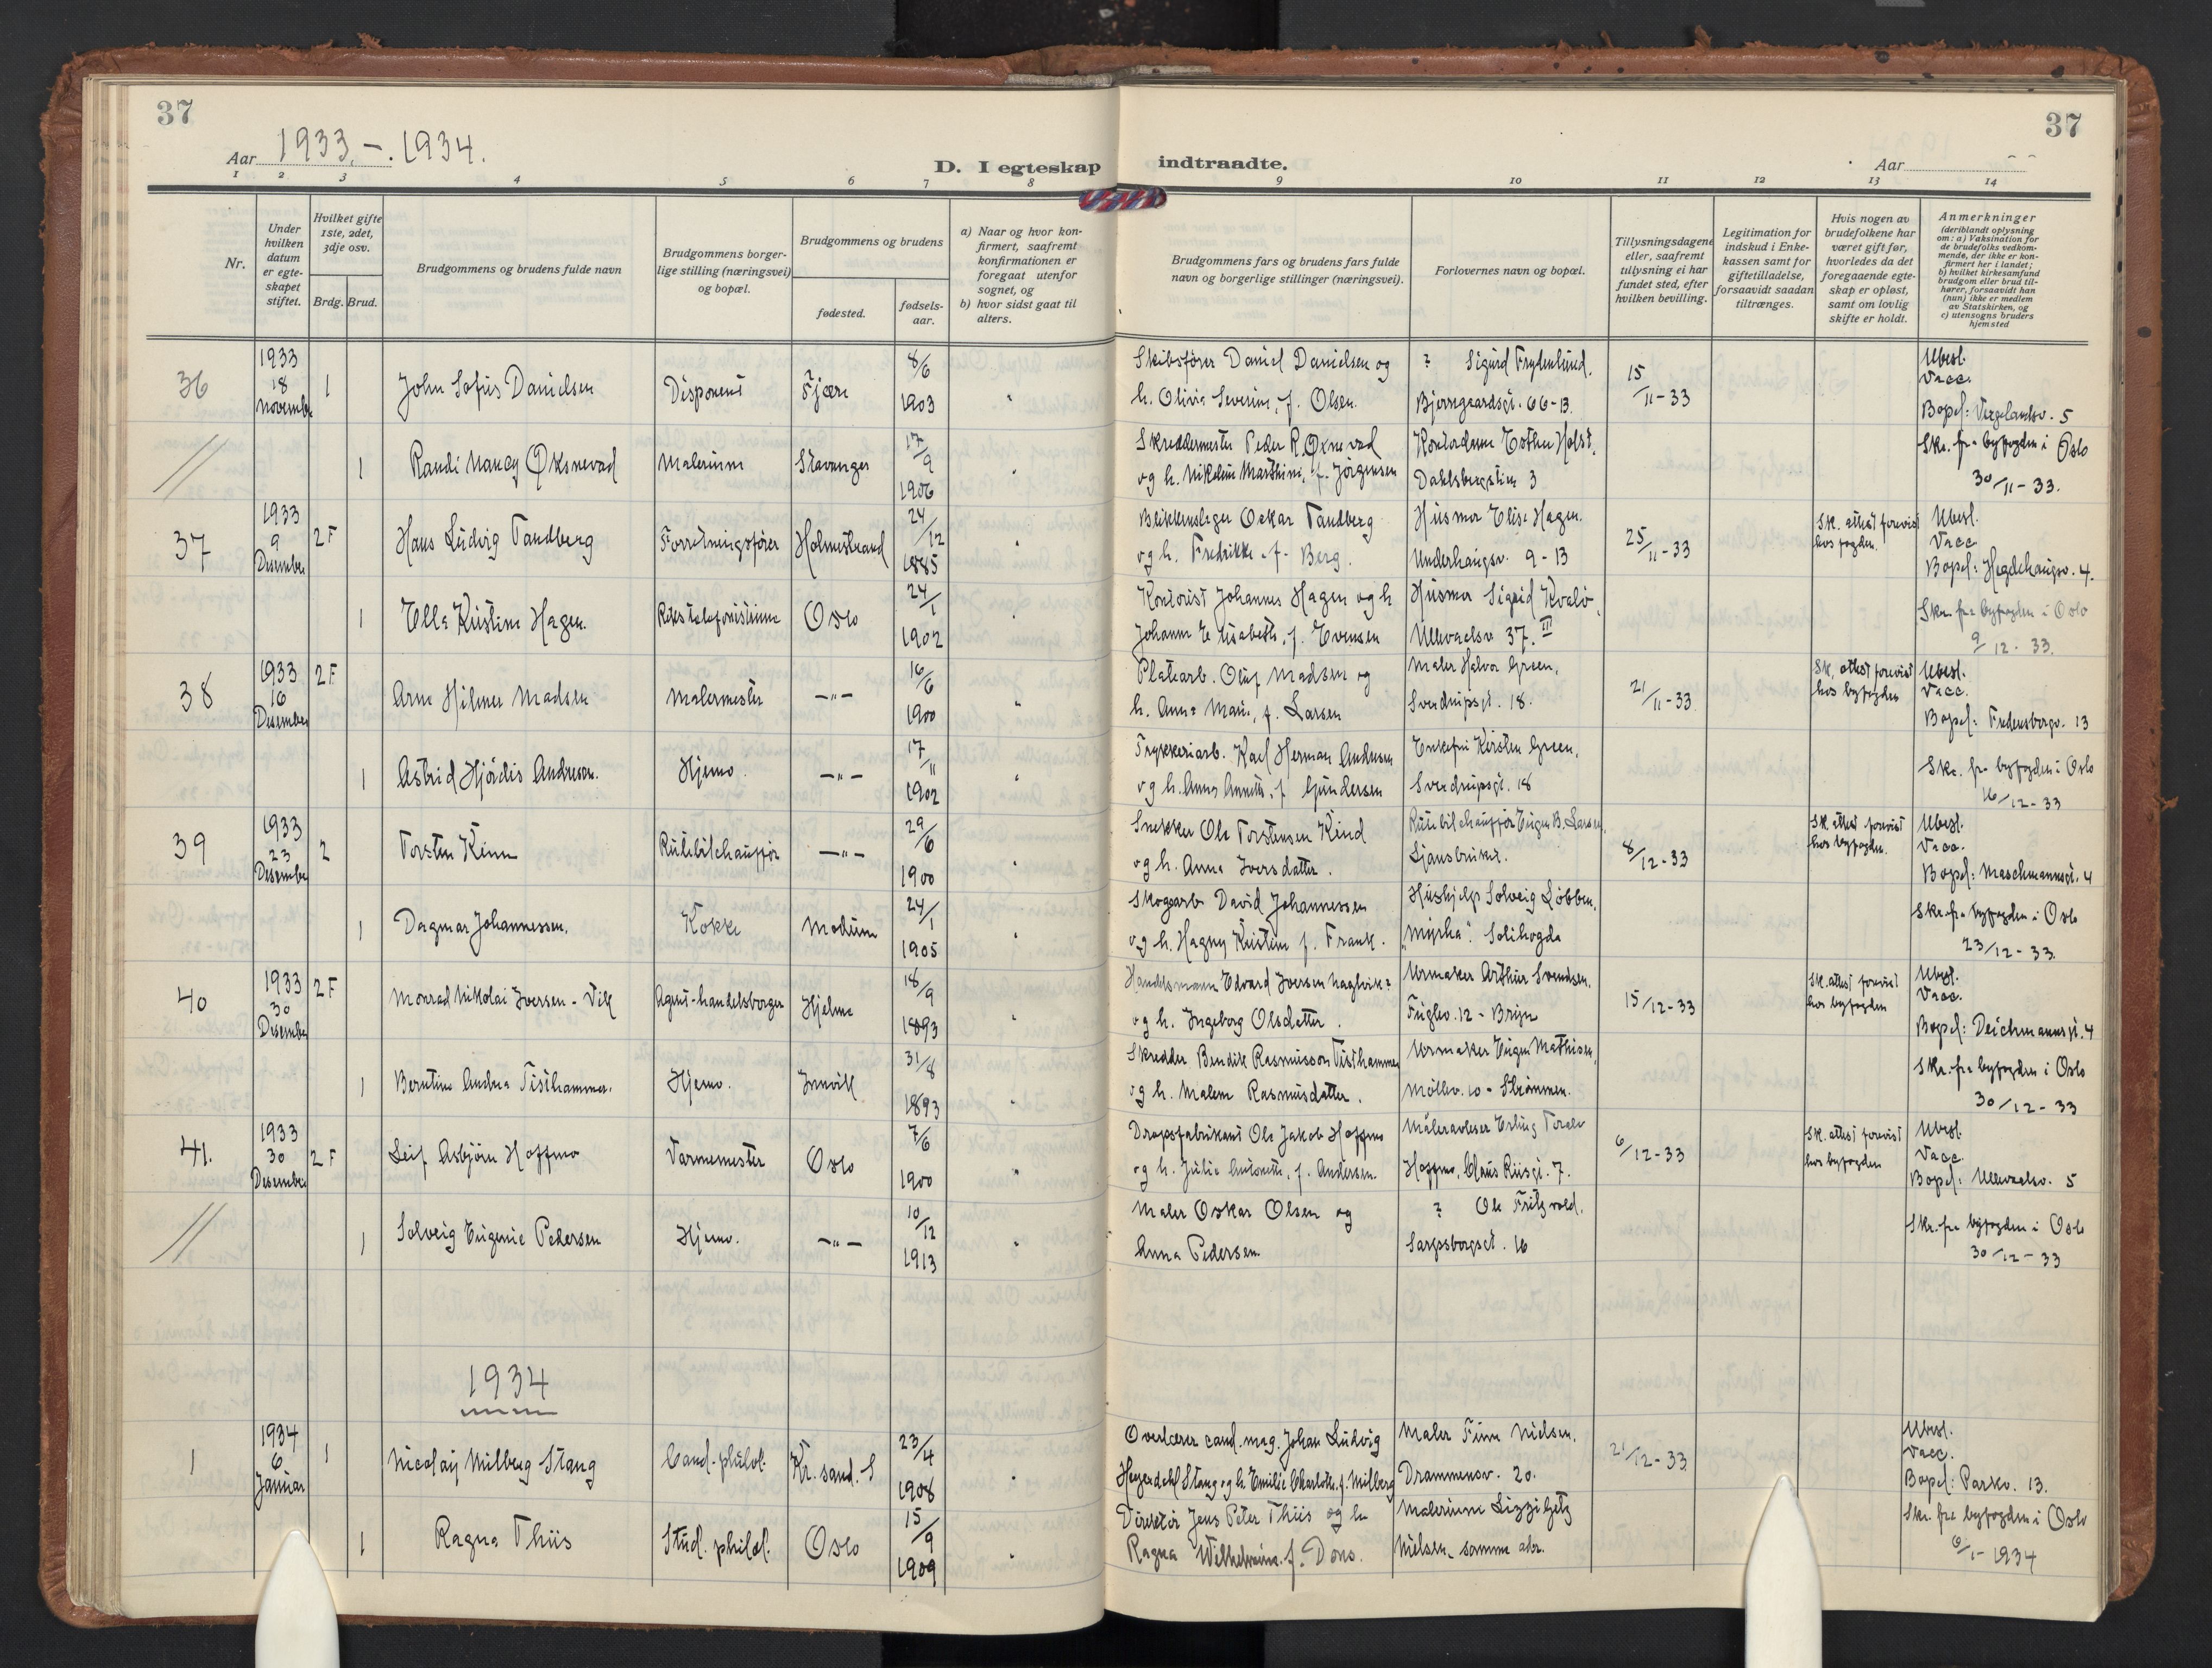 37
37
Aar 1933.-.1934.
D. I egteskap indtraadte.
Aar
1 2 3 4 5 6 7 8 9 10 11 12 13 14
Nr.
Under hvilken datum er egteskapet stiftet.
Hvilket gifte 1ste, 2det, 3dje osv.
Brdg. Brud.
Brudgommens og brudens fulde navn
Brudgommens borgerlige stilling (næringsvei) og bopæl.
Brudgommens og brudens
fødested.
fødselsaar.
a) Naar og hvor konfirmert, saafremt konfirmationen er foregaat utenfor sognet, og
b) hvor sidst gaat til alters.
Brudgommens fars og brudens fars fulde navn og borgerlige stillinger (næringsvei).
Forlovernes navn og bopæl.
Tillysningsdagene eller, saafremt tillysning ei har fundet sted, efter hvilken bevilling.
Legitimation for indskud i Enkekassen samt for giftetilladelse, forsaavidt saadan tiltrænges.
Hvis nogen av brudefolkene har været gift før, hvorledes da det foregaaende egteskap er opløst, samt om lovlig skifte er holdt.
Anmerkninger (deriblandt oplysning om: a) Vaksination for de brudefolks vedkommende, der ikke er konfirmert her i landet; b) hvilket kirkesamfund brudgom eller brud tilhører, forsaavidt han (hun) ikke er medlem av Statskirken, og c) utensogns bruders hjemsted
36 1933 18 November 1 John Sofus Danielsen Disponent Fjære 8/6 1903 Skibsfører Daniel Danielsen og h. Olivia Severine, f. Olsen. ? Sigurd Frydenlund. Bjerregaardsgt. 66-13. 15/11-33 Ubesl. Vacc. Bopel: Vergelandsv. 5
1 Randi Nancy Øksnevad Malerinne Stavanger 17/9 1906 Skreddermester Peder R. Øxnevad og h. Nikoline Marthine, f. Jörgensen Kontordame Esther Holst. Dahlsbergstien 3 Skr. fra byfogden i Oslo 30/11-33.
37 1933 9 Desember 2 F Hans Ludvig Tandberg Forretningsfører Holmestrand 24/12 1885 Blikkenslager Oskar Tandberg og h. Fredrikke f. Berg. Husmor Elise Hagen. Underhaugsv. 9-13 25/11-33 Sk. attest forevist hos fogden. Ubesl. Vacc. Bopel: Hegdehaugsv. 4.
1 Ella Kristine Hagen. Rikstelefonistinne Oslo 24/1 1902 Kontorist Johannes Hagen og h Johanne Elisabeth, f. Evensen Husmor Sigrid Kvalö, Ullevaalsv 37. III Skr. fra byfogden i Oslo 9/12-33.
38 1933 16 Desember 2 F Arne Hilmer Madsen Malermester -"- 16/6 1900 Platearb. Oluf Madsen og h. Anna Marie, f. Larsen Maler Halvor Green, Sverdrupsgt. 18. 21/11-33 Sk. attest forevist hos byfogden Ubesl. Vacc. Bopel: Fredensborgv. 13
1 Astrid Hjördis Andresen. Hjemv. -"- 17/11 1902 Trykkeriarb. Karl Herman Andresen og h. Anna Annette, f Gundersen Enkefru Kirsten Green, Sverdrupsgt. 18 Skr. fra byfogden i Oslo 16/12-33
39 1933 23 Desember 2 Torsten Kinn Rutebilchauffør -"- 29/6 1900 Snekker Ole Torstensen Kind og h. Anna Iversdatter. Rutebilchauffør Eugen B. Larsen, Ljansbruket. 8/12-33 Sk. attest forevist hos byfogden. Ubesl. Vacc. Bopel: Maschmannsgt. 4
1 Dagmar Johannessen. Kokke Modum 24/1 1905 Skogsarb David Johannessen og h. Hagny Kristine f. Frank. Hushjelp Solveig Löbben, "Myrka". Solihogda Skr. fra byfogden i Oslo 23/12-33.
40 1933 30 Desember 2 F Monrad Nikolai Iversen-Vik Agent-handelsborger Hjelme 18/9 1893 Handelsmann Edvard Iversen Naglvik? og h. Ingeborg Olsdatter. Urmaker Arthur Svendsen. Fuglev. 12 - Bryn 15/12-33 Sk. attest forevist hos byfogden Ubesl. Vacc. Bopel: Deichmannsgt. 4
1 Berntine Andrea Tisthammer. Hjemv. Innvik 31/8 1893 Skredder Bendik Rasmusson Tisthammer og h. Malene Rasmusdatter. Urmaker Eugen Mathisen, Möllev. 10 - Strömmen. Skr. fra byfogden i Oslo 30/12-33
41. 1933 30 Desember 2 F Leif Asbjörn Hoffmo Varmemester Oslo 7/6 1900 Dropsfabrikant Ole Jakob Hoffmo og h. Julie Antonette, f. Andersen. Måleravleser Erling Toralv Hoffmo, Claus Riisgt. 7. 6/12-33 Sk. attest forevist hos byfogden Ubesl. Vacc. Bopel: Ullevaalsv. 5
1 Solveig Eugenie Pedersen Hjemv. -"- 10/12 1913 Maler Oskar Olsen og Anna Pedersen ? Ole Fritzvold. Sarpsborggt. 16 Skr. fra byfogden i Oslo 30/12-33
1934
1 1934 6 Januar 1 Nicolay Milberg Stang Cand. philol. Kr. sand. S 23/4 1908 Overlærer cand. mag. Johan Ludvig Heyerdahl Stang og h. Emilie Charlotte, f. Milberg Maler Finn Nielsen. Drammensv. 20. 21/12-33 Ubesl. Vacc. Bopel: Parkv. 13.
1 Ragna Thiis Stud. philol. Oslo 15/9 1909 Direktör Jens Peter Thiis og h Ragna Wilhelmine f. Dons. Malerinne Lizzi Getz Nielsen. samme adr. Skr. fra byfogden i Oslo 6/1-1934